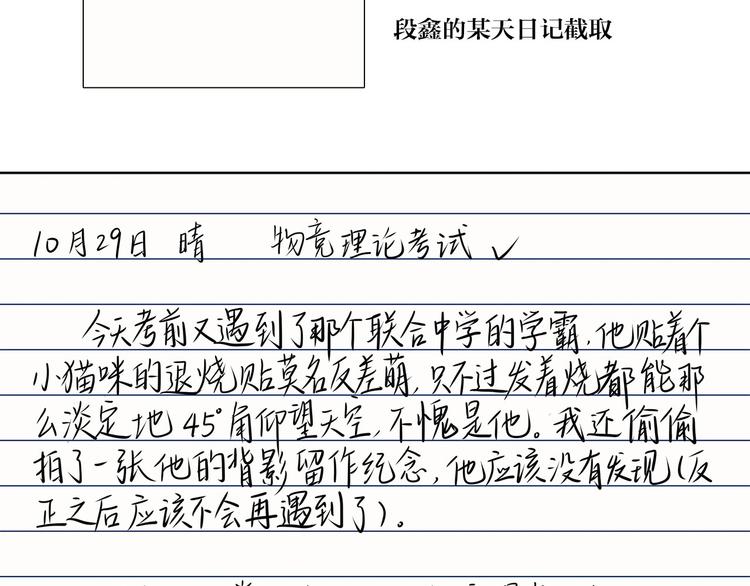 段鑫的某天日记截取
10月29日 晴 物竞理论考试 ✓
今天考前又遇到了那个联合中学的学霸，他贴着个
小猫咪的退烧贴莫名反差萌，只不过发着烧都能那
么淡定地45°角仰望天空，不愧是他。我还偷偷
拍了一张他的背影留作纪念，他应该没有发现（反
正之后应该不会再遇到了）。